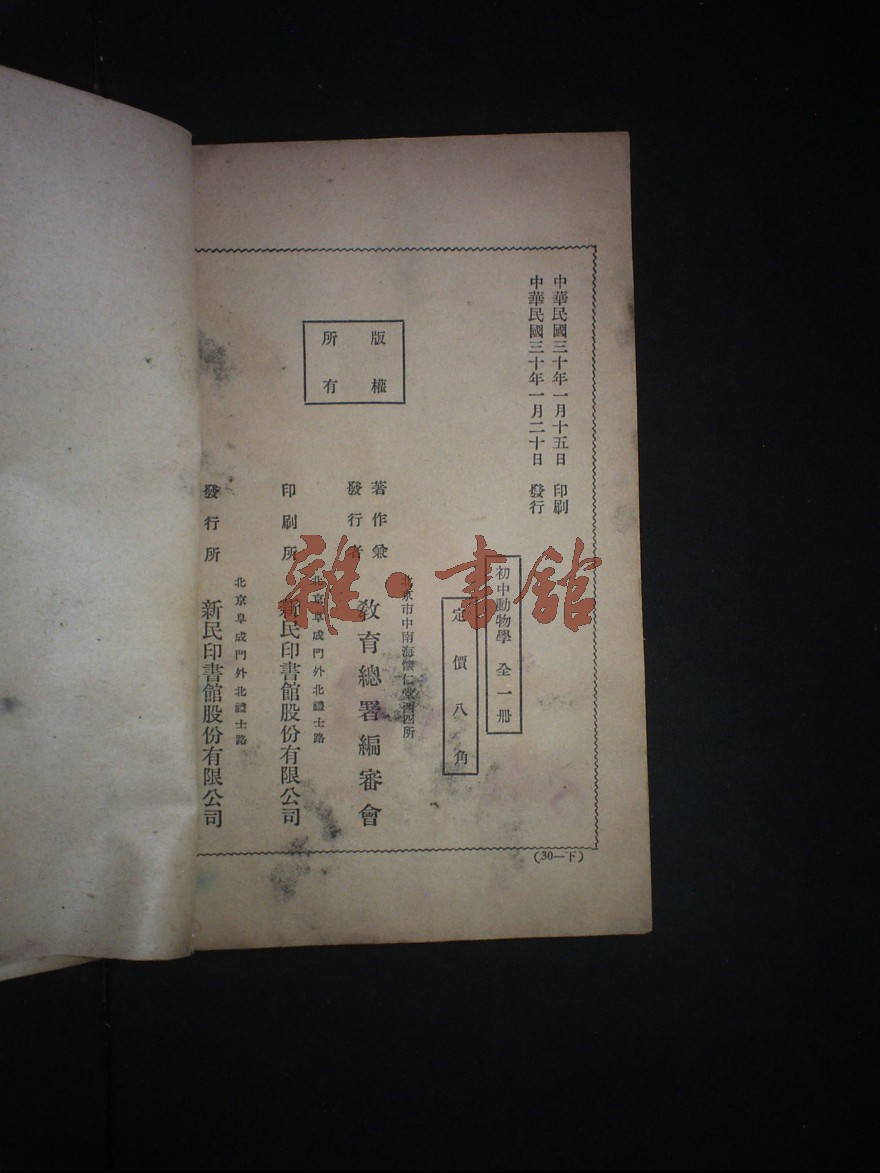 中華民國三十年一月十五日 印刷
中華民國三十年一月二十日 發行
初中動物學 全一册
定價八角
版權
所有
北京市中南海懷仁堂西四所
著作兼
發行者
教育總署編審會
北京阜成門外北禮士路
印刷所 新民印書館股份有限公司
北京阜成門外北禮士路
發行所 新民印書館股份有限公司
(30—下)
雜·書館